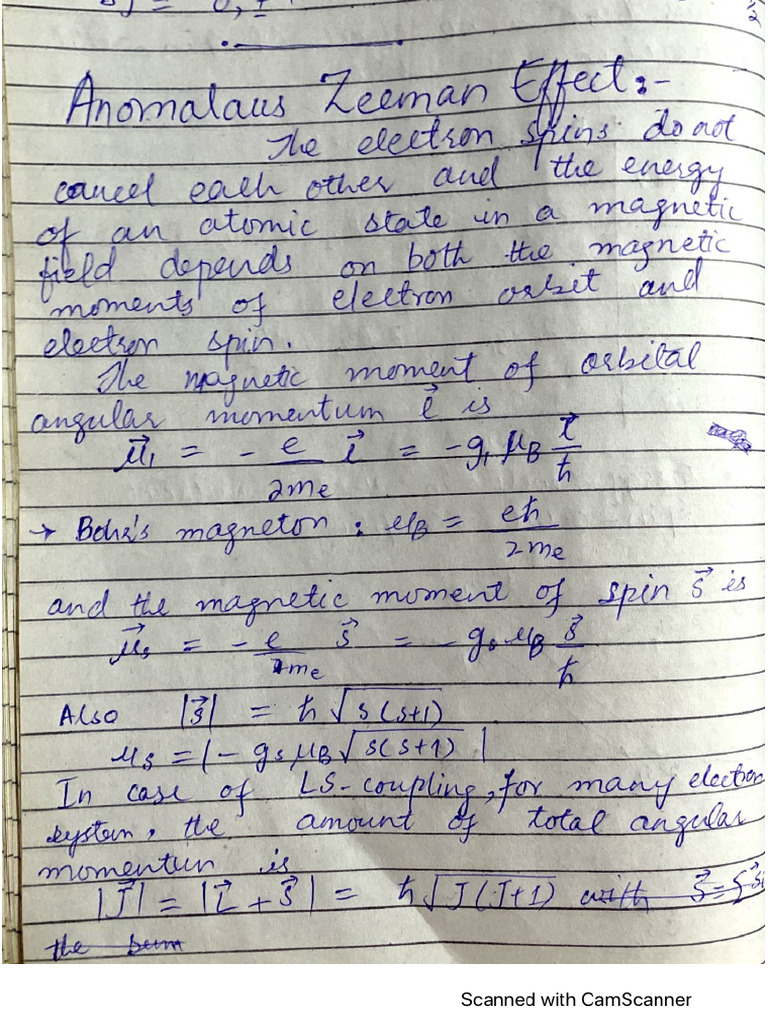 Anomalaus Zeeman Effect:-
The electron spins do not
cancel each other and the energy
of an atomic state in a magnetic
field depends on both the magnetic
moments of electron orbit and
electron spin.
The magnetic moment of orbital
angular momentum l⃗ is
μ⃗₁ = - e/2me l⃗ = -g₁ μB l⃗/ħ
→ Bohr's magneton : μB = eħ/2me
and the magnetic moment of spin s⃗ is
μ⃗s = - e/2me s⃗ = - gs μB s⃗/ħ
Also |s⃗| = ħ √s(s+1)
μs = |- gs μB √s(s+1) |
In case of LS-coupling, for many electron
system, the amount of total angular
momentum is
|J⃗| = |L⃗ + S⃗| = ħ √J(J+1) with S⃗ = Σ s⃗i
the sum
Scanned with CamScanner